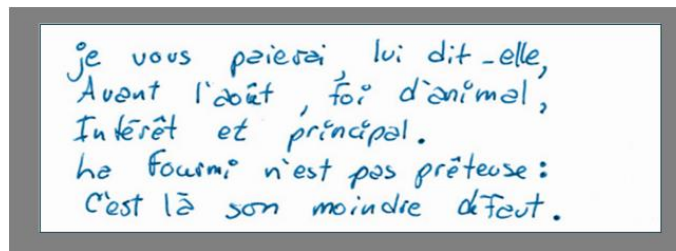 je vous paierai, lui dit-elle,
Avant l'août, foi d'animal,
Intérêt et principal.
La fourmi n'est pas prêteuse :
C'est là son moindre défaut.